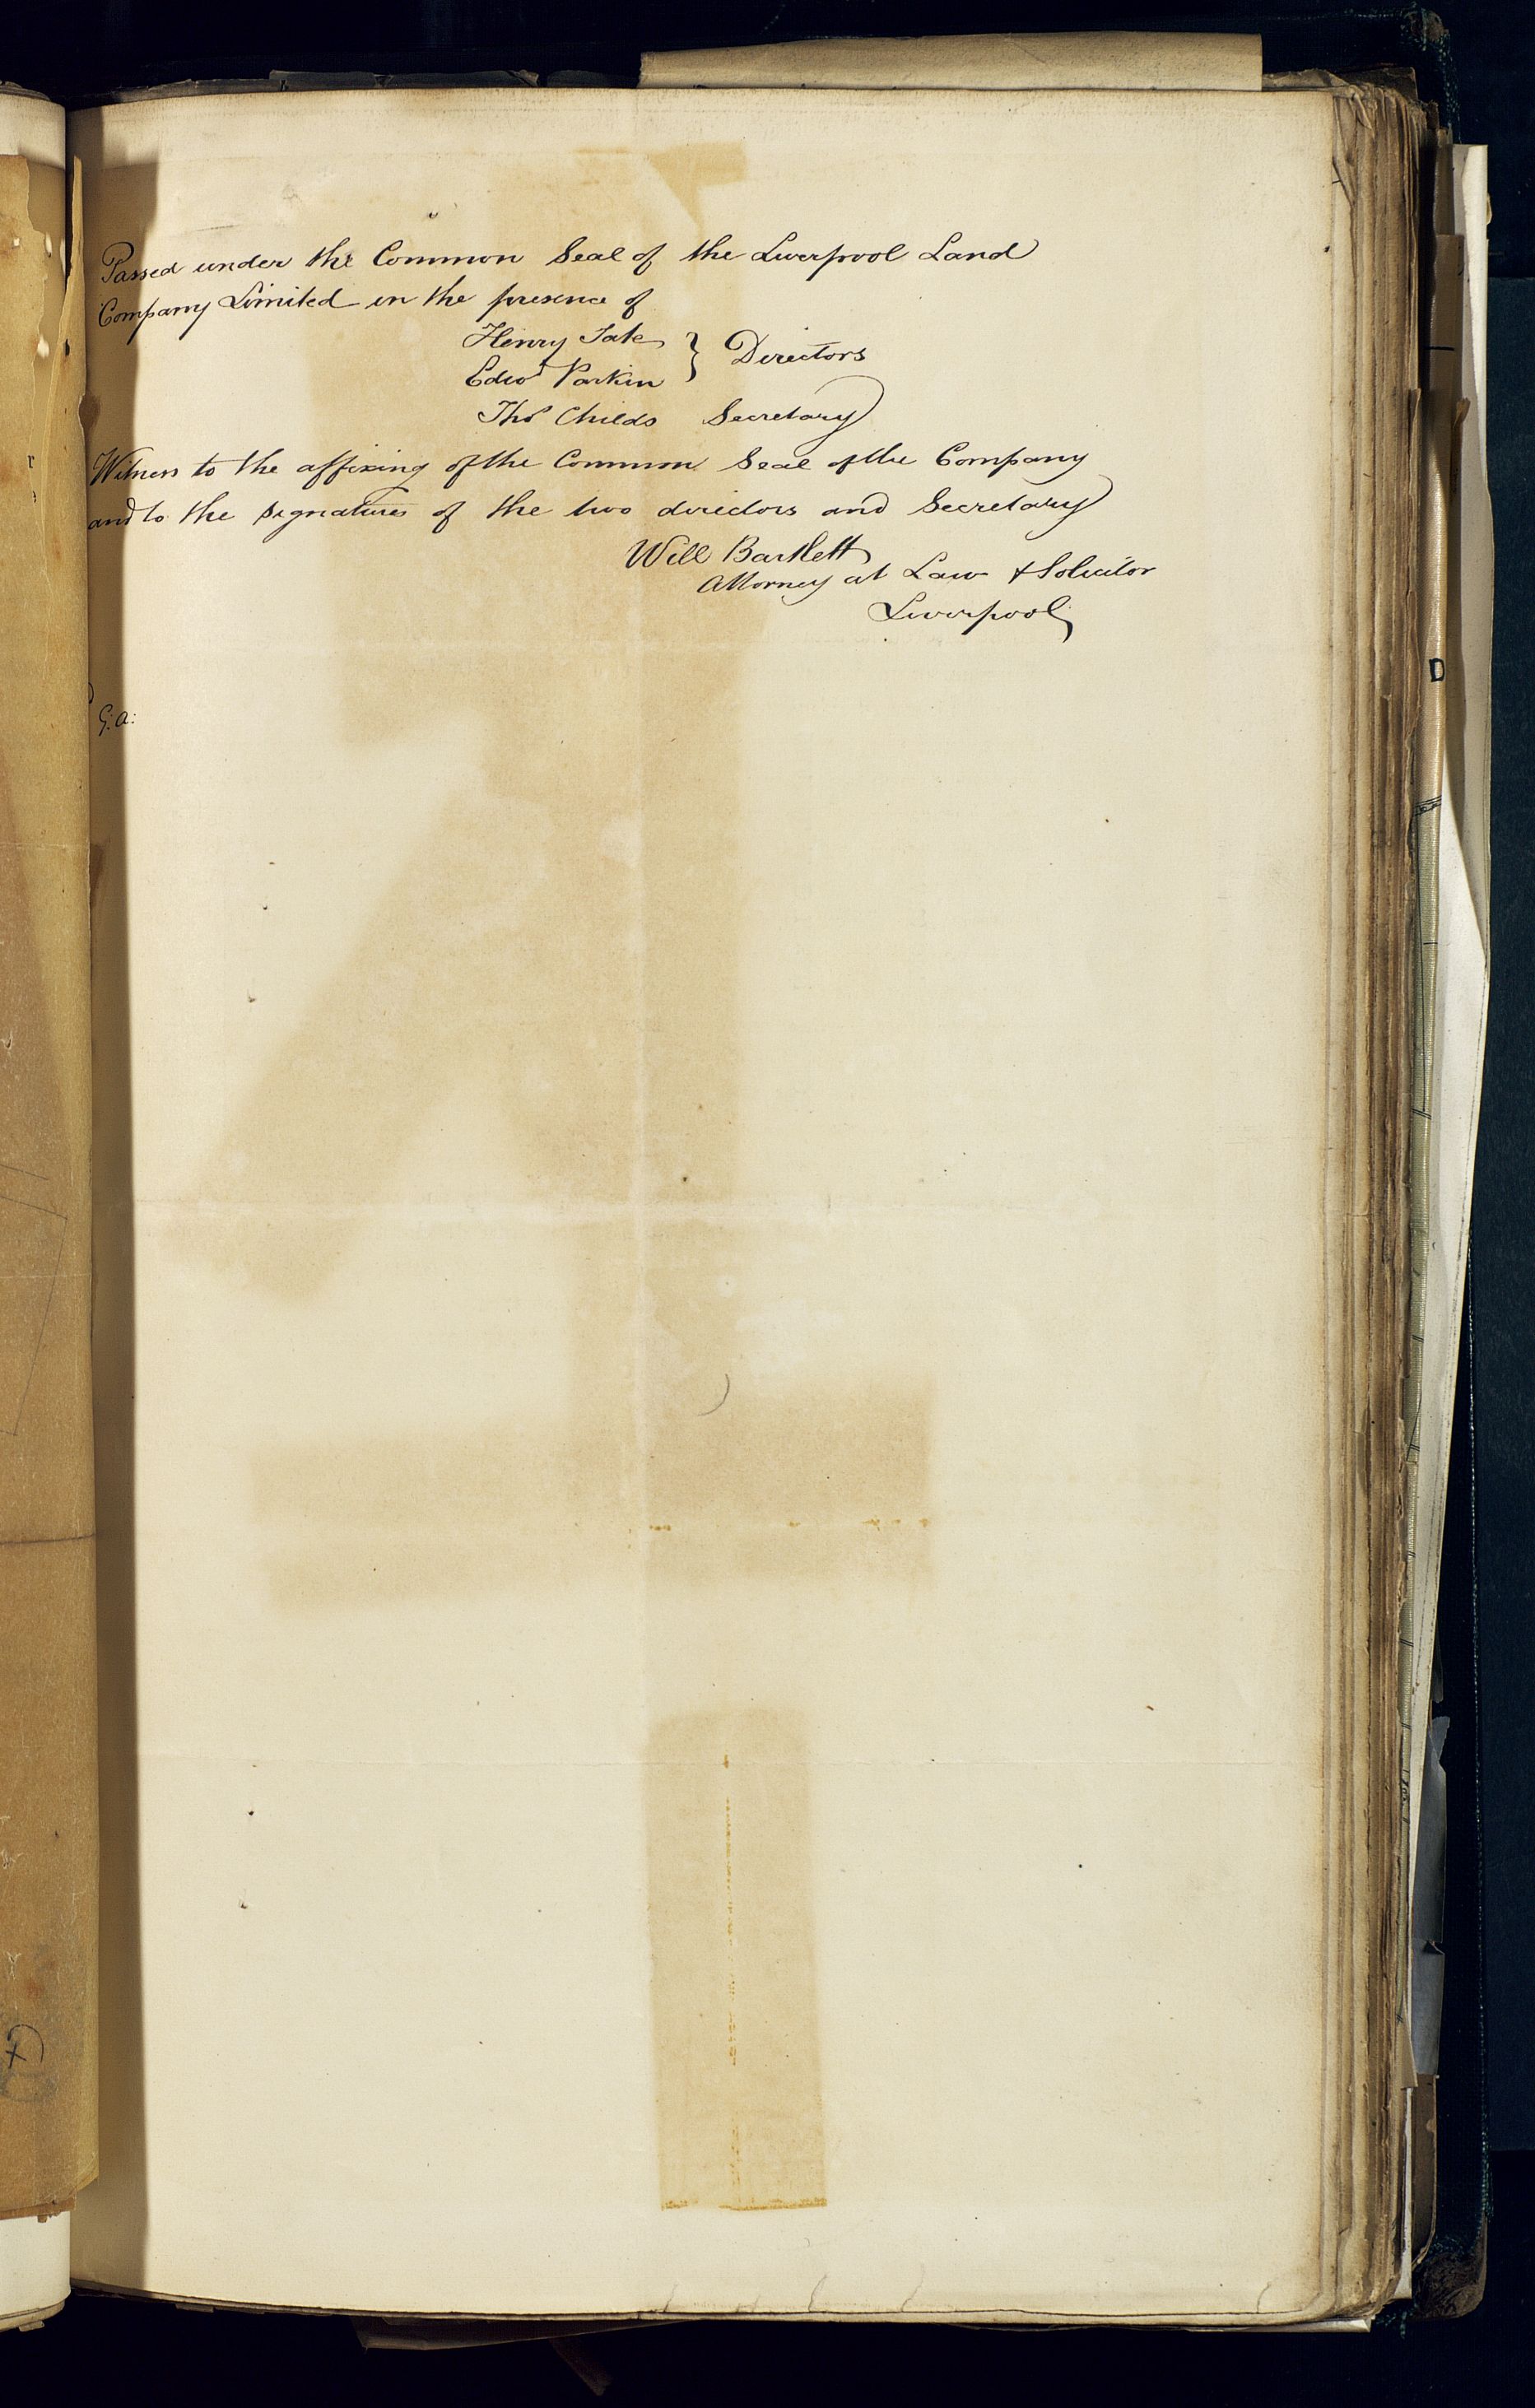 Passed under the Common Seal of the Liverpool Land
Company Limited in the presence of
Henry Tate } Directors
Edwd Parkin
Thos Childs Secretary
Witness to the affixing of the Common Seal of the Company
and to the signatures of the two directors and Secretary
Will Bartlett
Attorney at Law & Solicitor
Liverpool
G: A:
D